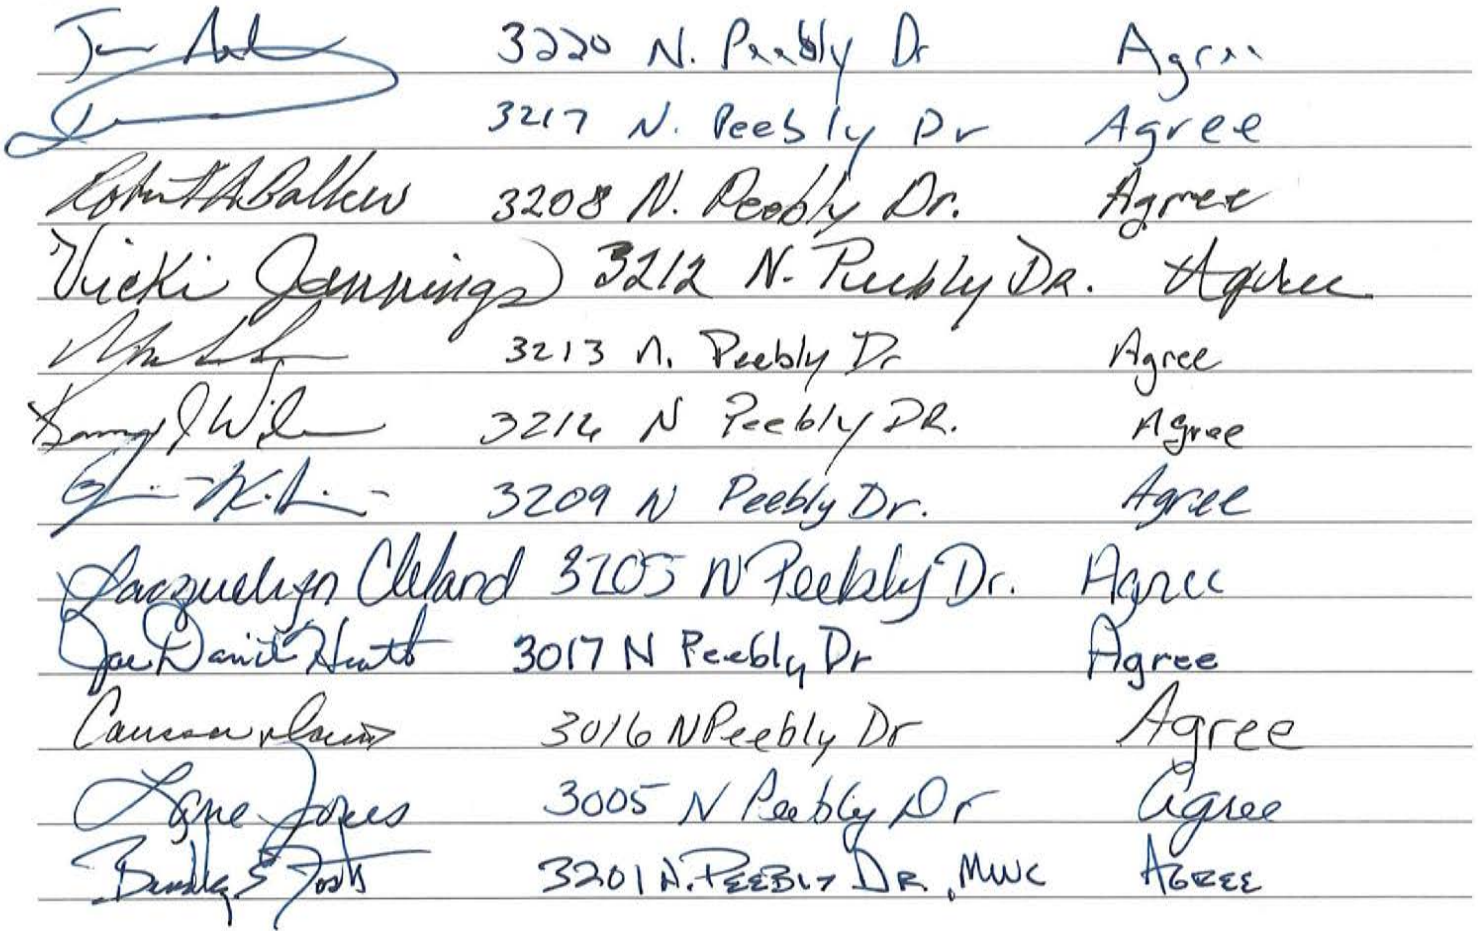 3220 N. Peebly Dr Agree
3217 N. Peebly Dr Agree
Robert A. 3208 N. Peebly Dr. Agree
Vicki Jennings 3212 N. Peebly Dr. Agree
3213 N. Peebly Dr Agree
3216 N Peebly DR. Agree
3209 N Peebly Dr. Agree
Jacquelyn Cleland 3205 N Peebly Dr. Agree
Joe David 3017 N Peebly Dr Agree
3016 N Peebly Dr Agree
Lane Jones 3005 N Peebly Dr Agree
3201 N. PEEBLY DR, MWC AGREE